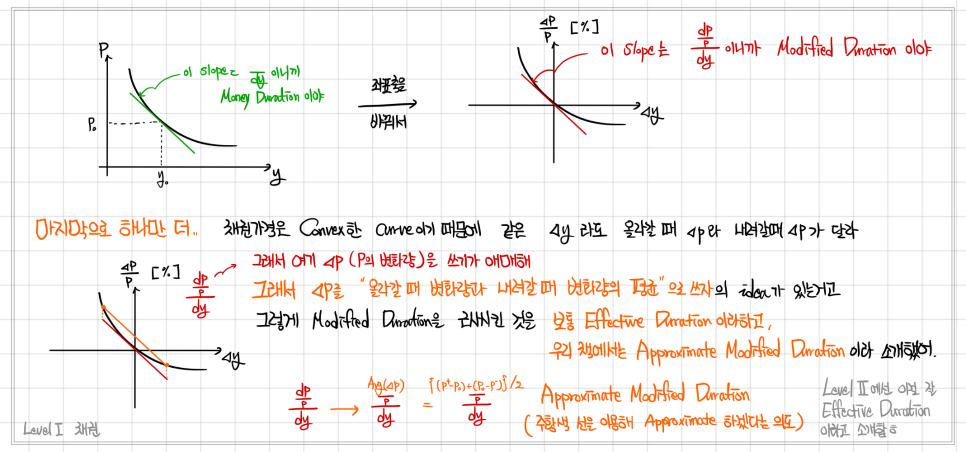 P
이 slope는 dP/dy 이니까
Money Duration 이야
P₀
y₀
y
좌표축을
바꿔서
ΔP/P [%]
이 slope는 dP/P/dy 이니까 Modified Duration 이야
Δy
마지막으로 하나만 더..
채권가격은 Convex한 curve이기 때문에 같은 Δy 라도 올라갈 때 ΔP와 내려갈때 ΔP가 달라
ΔP/P [%]
Δy
dP/P/dy
그래서 여기 ΔP (P의 변화량)을 쓰기가 애매해
그래서 ΔP를 "올라갈 때 변화량과 내려갈 때 변화량의 평균"으로 쓰자의 idea가 있는거고
그렇게 Modified Duration을 근사시킨 것을 보통 Effective Duration 이라하고,
우리 책에서는 Approximate Modified Duration 이라 소개했어.
dP/P/dy → Avg(ΔP)/P/dy = [(P⁺-P₀)+(P₀-P⁻)]/2/P/dy
Approximate Modified Duration
(주황색 선을 이용해 Approximate 하겠다는 의도)
Level II에선 이걸
Effective Duration
이라고 소개함
Level I 채권